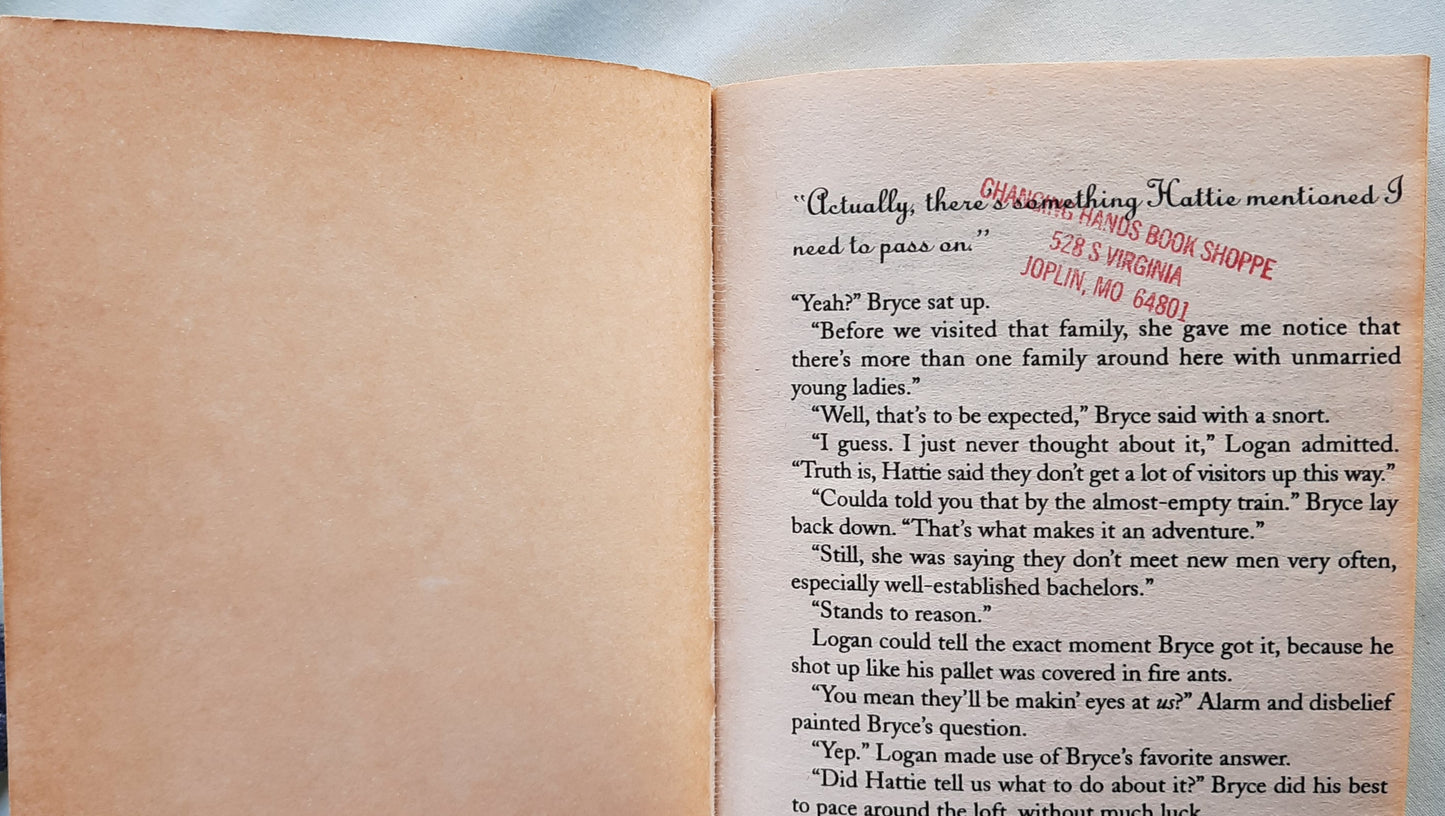 “Actually, there’s something Hattie mentioned I
need to pass on.”
CHANGING HANDS BOOK SHOPPE
528 S VIRGINIA
JOPLIN, MO 64801
“Yeah?” Bryce sat up.
“Before we visited that family, she gave me notice that
there’s more than one family around here with unmarried
young ladies.”
“Well, that’s to be expected,” Bryce said with a snort.
“I guess. I just never thought about it,” Logan admitted.
“Truth is, Hattie said they don’t get a lot of visitors up this way.”
“Coulda told you that by the almost-empty train.” Bryce lay
back down. “That’s what makes it an adventure.”
“Still, she was saying they don’t meet new men very often,
especially well-established bachelors.”
“Stands to reason.”
Logan could tell the exact moment Bryce got it, because he
shot up like his pallet was covered in fire ants.
“You mean they’ll be makin’ eyes at us?” Alarm and disbelief
painted Bryce’s question.
“Yep.” Logan made use of Bryce’s favorite answer.
“Did Hattie tell us what to do about it?” Bryce did his best
to pace around the loft, without much luck.